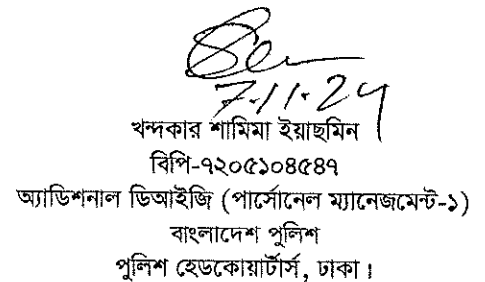 7.11.24
খন্দকার শামিমা ইয়াছমিন
বিপি-৭২০৫১০৪৫৪৭
অ্যাডিশনাল ডিআইজি (পার্সোনেল ম্যানেজমেন্ট-১)
বাংলাদেশ পুলিশ
পুলিশ হেডকোয়ার্টার্স, ঢাকা।